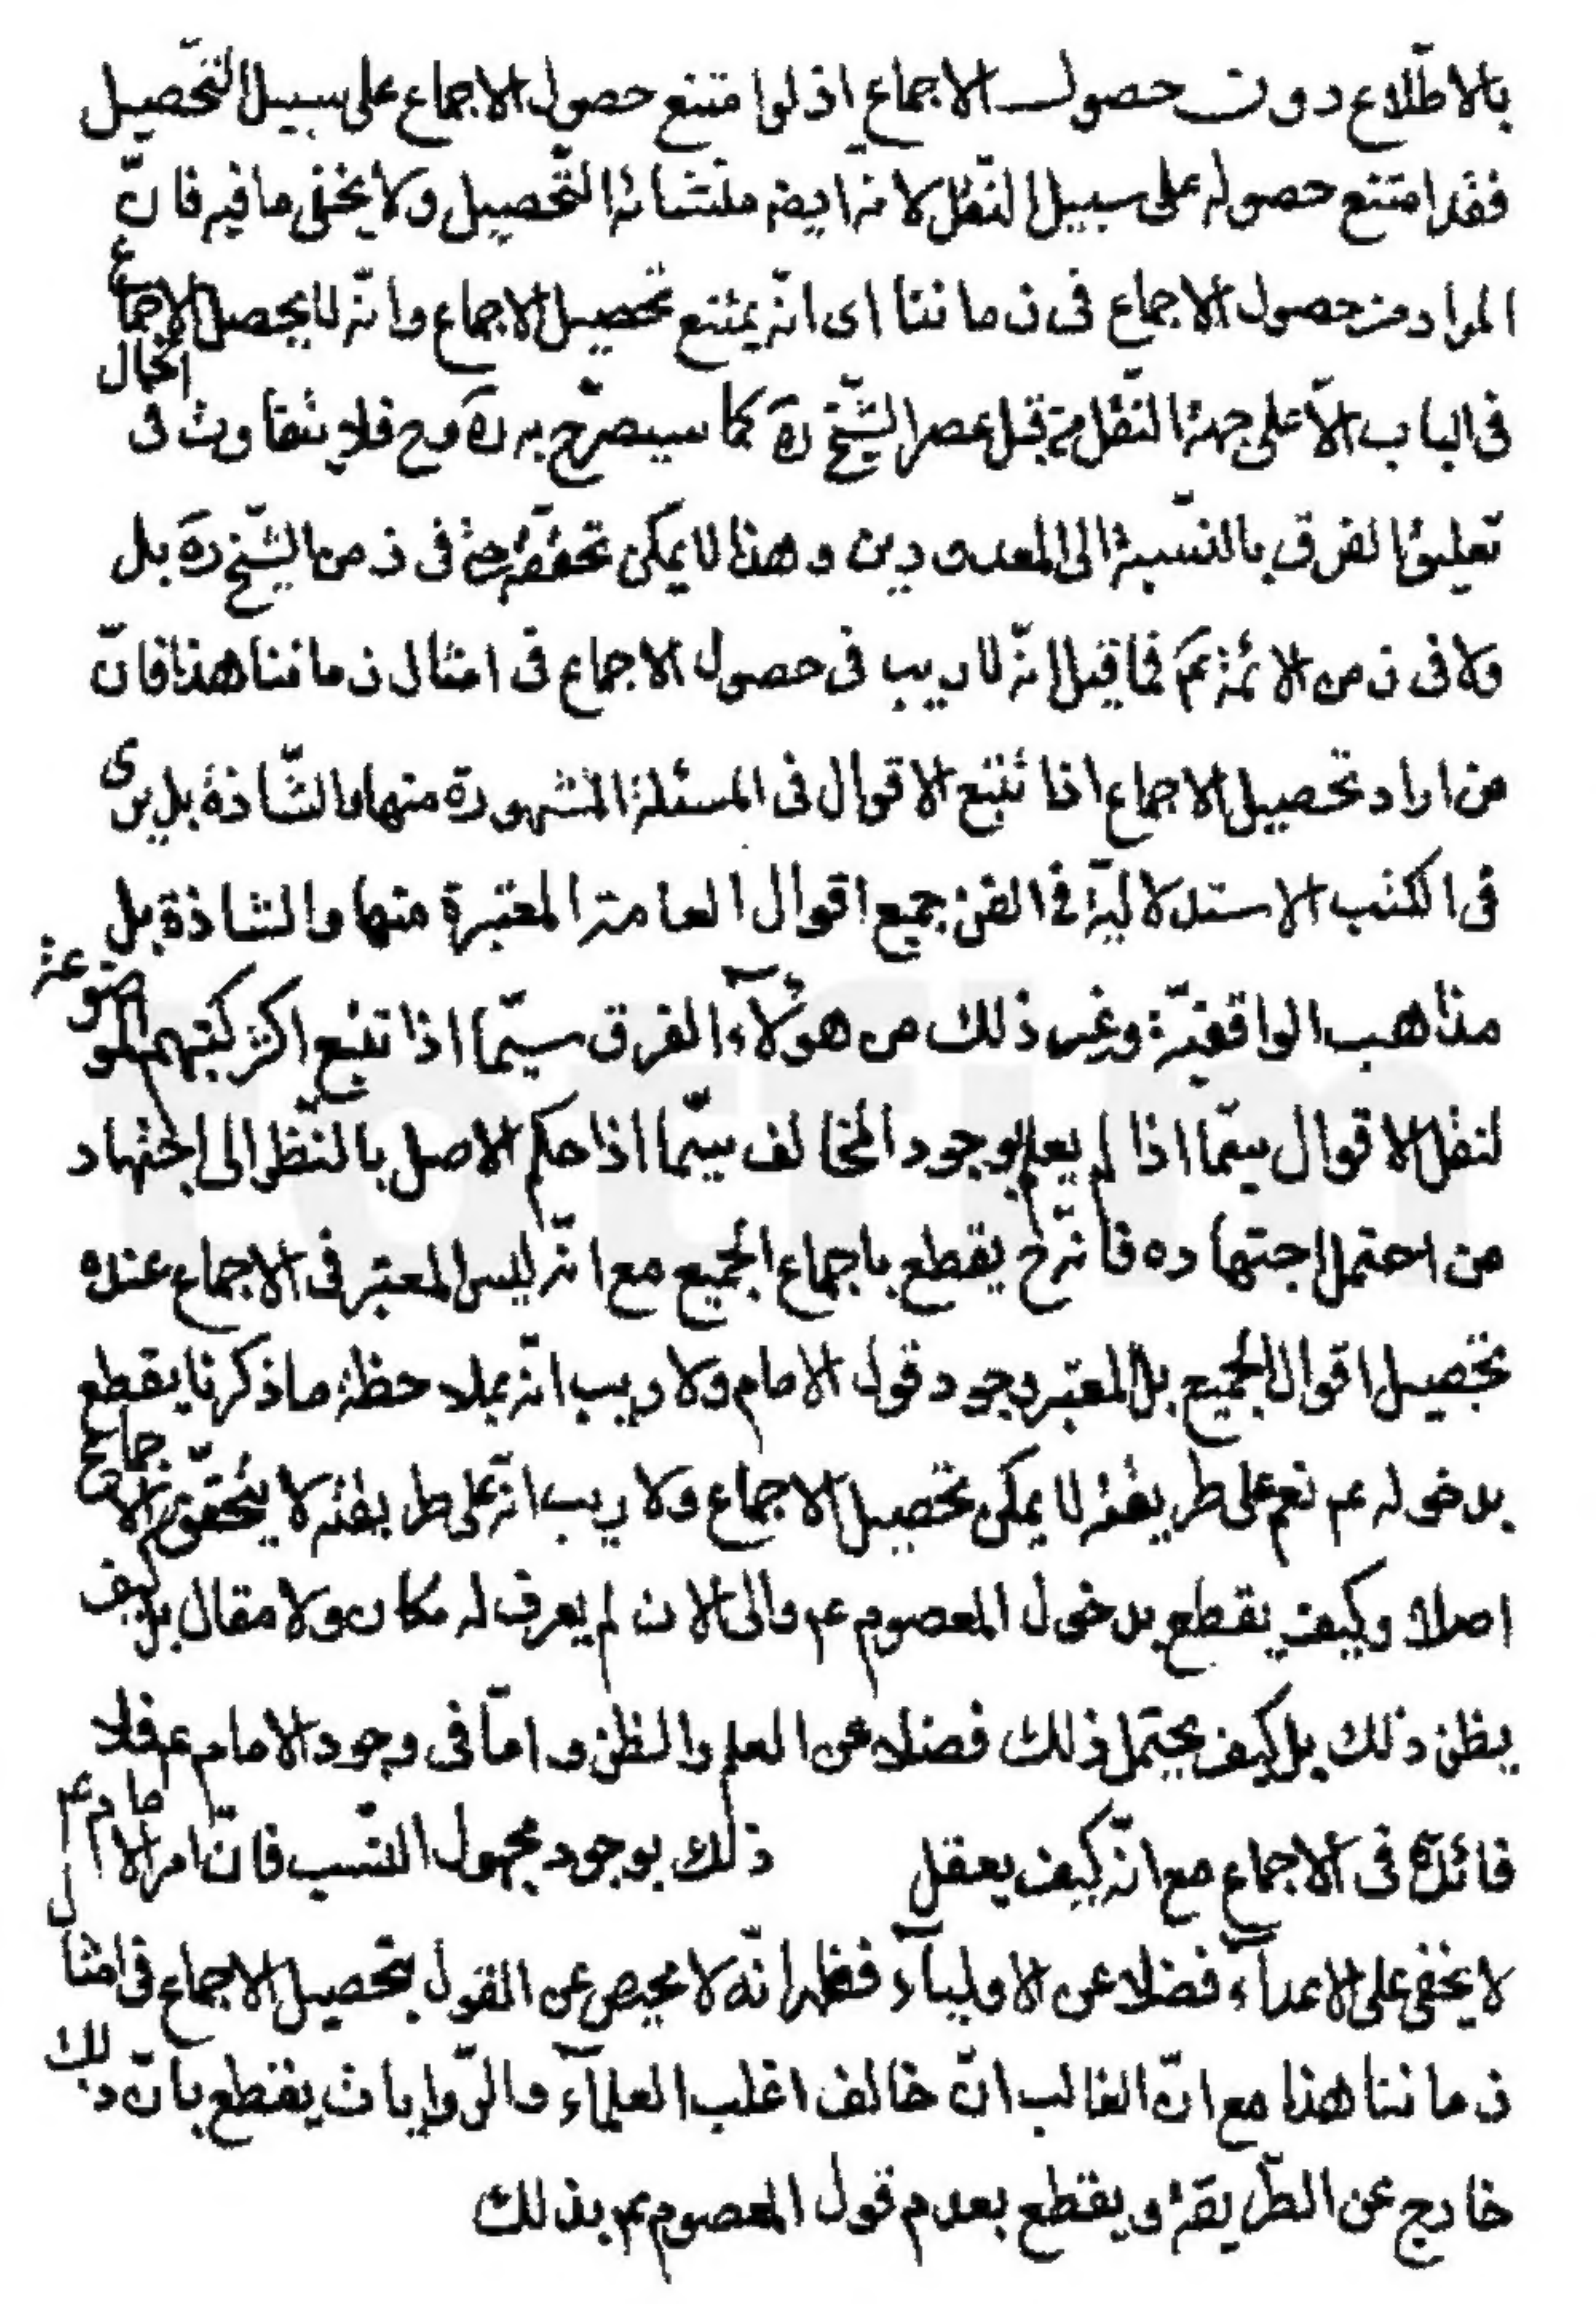 بالاطّلاع دون حصول الاجماع اذ لوا متنع حصول الاجماع على سبيل التّحصيل
فقد امتنع حصوله على سبيل النّقل لانه ايضه منشائه التّحصيل ولا يخفى ما فيه فانّ
المراد من حصول الاجماع فى زماننا اى انّه يمتنع تحصيل الاجماع وانّه لا يحصل الاجماع
فى الباب الّا على جهة النّقل من قبل عصر الشّيخ ره كما سيصرّح به ره وح فلا يتفاوت فى الحال
تعليق الفرق بالنّسبة الى المعدودين وهذا لا يمكن تحقّقه فى زمن الشّيخ ره بل
ولا فى زمن الائمّة عم فما قيل انّه لا ريب فى حصول الاجماع فى امثال زماننا هذا فانّ
من اراد تحصيل الاجماع اذا تتبع الاقوال فى المسئلة المشهورة منها والشّاذة بل يرى
فى الكتب الاستدلاليّة فى الفن جميع اقوال العامة المعتبرة منها والشاذة بل
مذاهب الواقفيّة وغير ذلك من هؤلآء الفرق سيّما اذا تتبع اكثر كتبهم الموضوعة
لنقل الاقوال سيّما اذا لم يعلم بوجود المخالف سيّما اذا حكم الاصل بالنّظر الى اجتهاد
من احتمل اجتهاده فانّه ح يقطع باجماع الجميع مع انّه ليس المعتبر فى الاجماع عنده
تحصيل اقوال الجميع بل المعتبر وجود قول الامام ولا ريب انّه بملاحظة ما ذكرنا يقطع
بدخوله عم نعم على طريقته لا يمكن تحصيل الاجماع ولا ريب انّه على طريقته لا يتحقّق الاجماع
اصلا وكيف يقطع بدخول المعصوم عم والى الان لم يعرف له مكان ولا مقال بل كيف
يظن ذلك بل كيف يحتمل ذلك فضلا عن العلم والظن وامّا فى وجود الامام عم فلا
فائدة فى الاجماع مع انّه كيف يعقل ذلك بوجود مجهول النّسب فانّ امر الامام عم
لا يخفى على الاعدآء فضلا عن الاوليآء فظهر انّه لا محيص عن القول بتحصيل الاجماع فى امثال
زماننا هذا مع انّ الغالب انّ خالف اغلب العلمآء والرّوايات يقطع بانّ ذلك
خارج عن الطّريقة ويقطع بعدم قول المعصوم عم بذلك